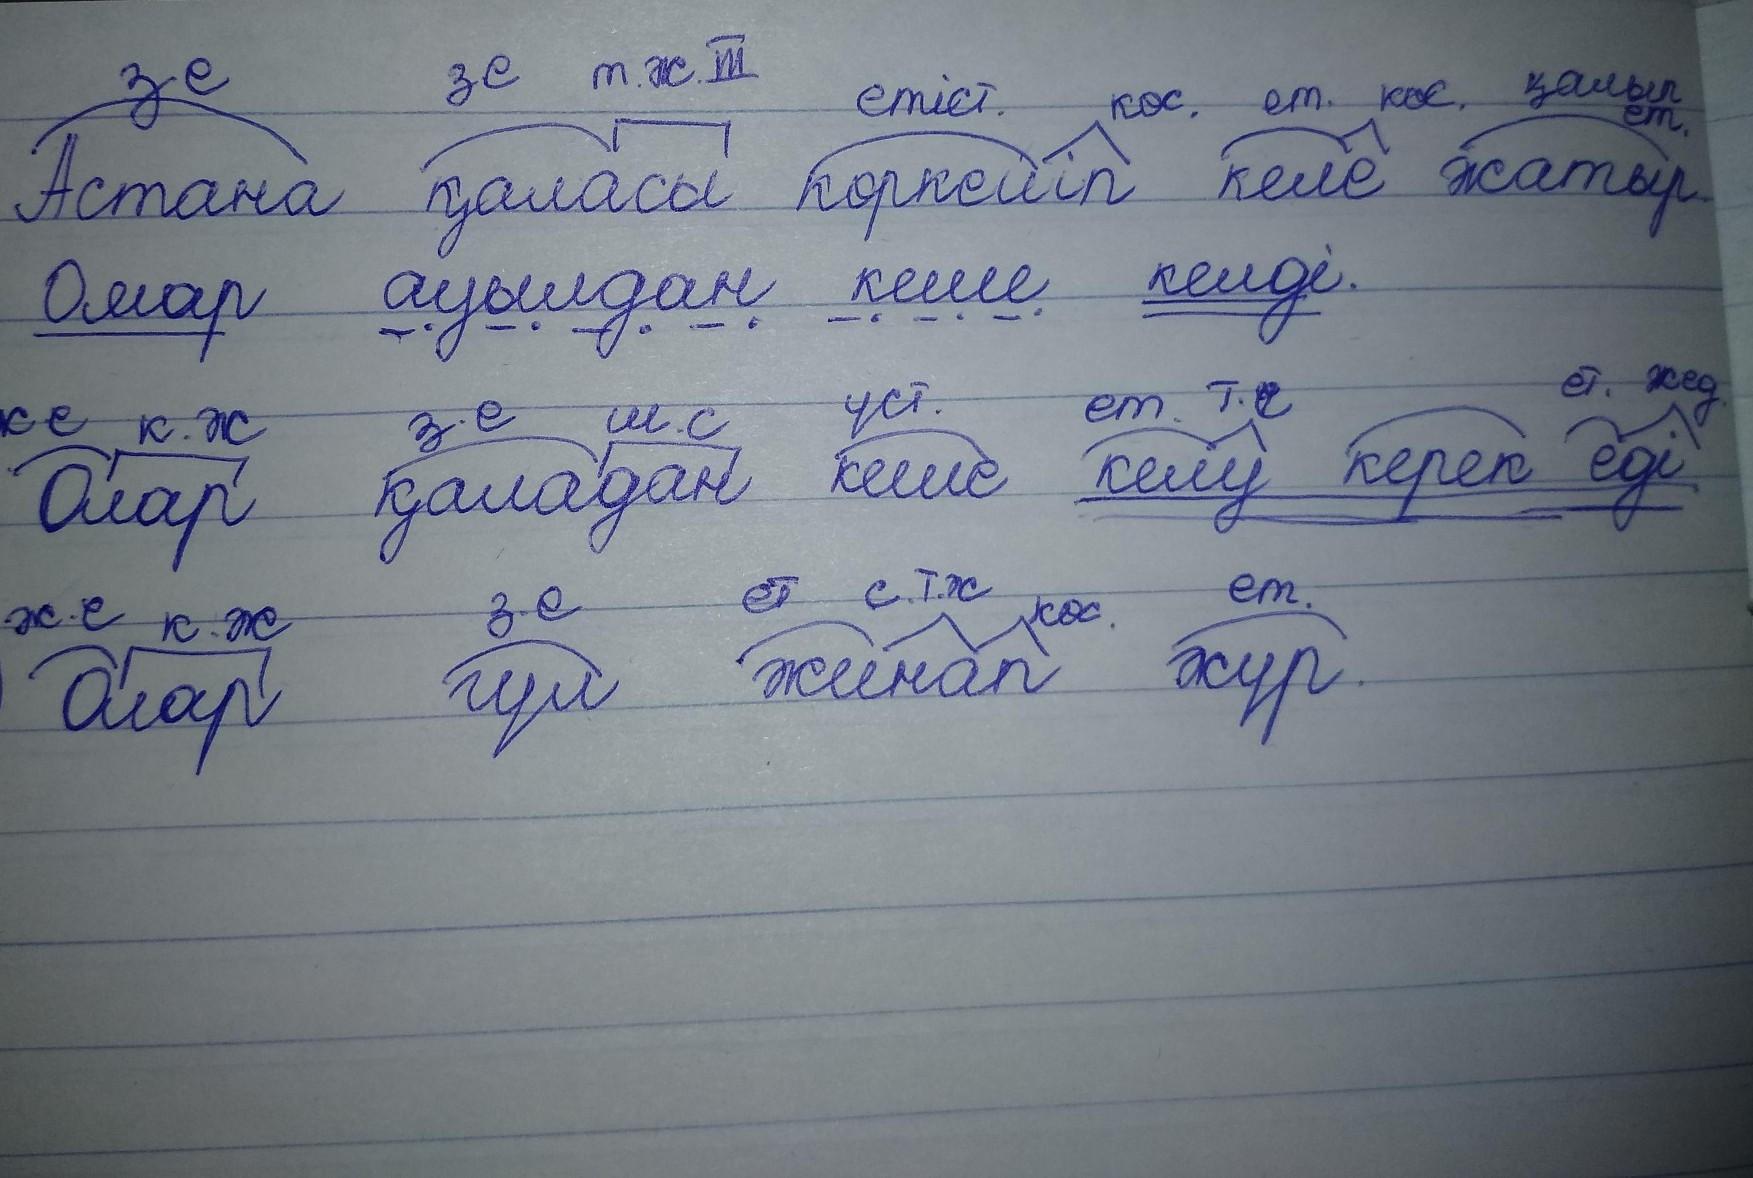 з.е зе т.ж.III етіст. кос. ет. кос. қалып ет.
Астана қаласы коркейіп келе жатыр.
Омар ауылдан кеше келді.
ж.е к.ж з.е ш.с үст. ет. т.е ет. жед.
Олар қаладан кеше келу керек еді
ж.е к.ж з.е ет с.т.ж кос. ет.
Олар гүл жинап жүр.